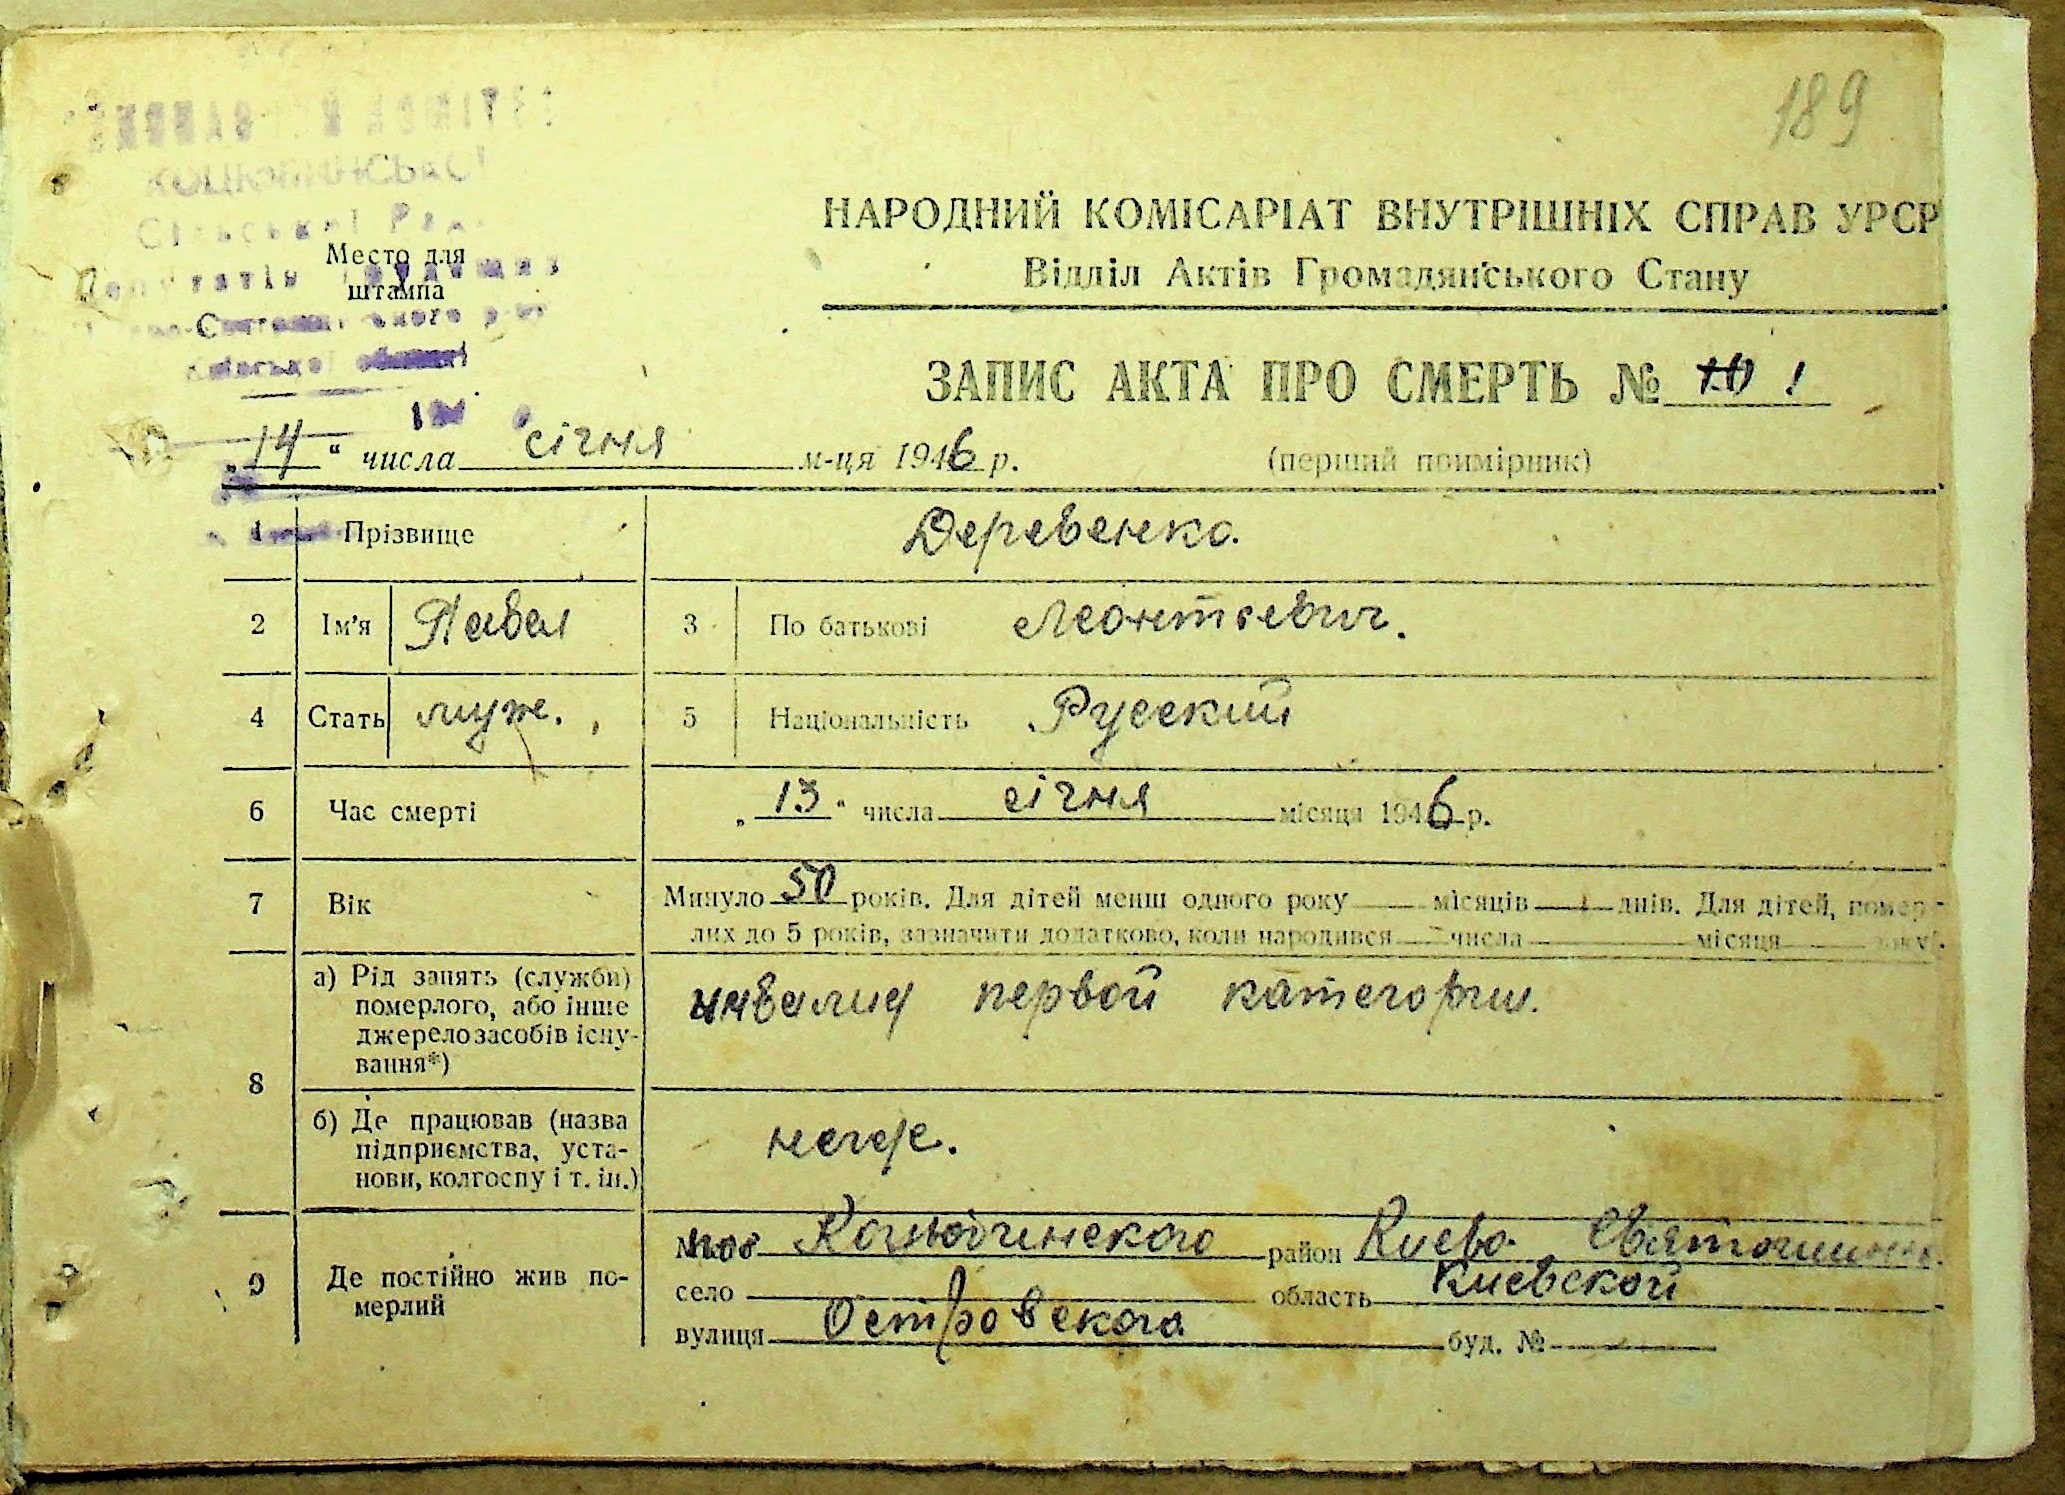 189
КОЦЮБИНСЬКОЇ
Сільської Ради
Место для
штампа
НАРОДНИЙ КОМІСАРІАТ ВНУТРІШНІХ СПРАВ УРСР
Відділ Актів Громадянського Стану
ЗАПИС АКТА ПРО СМЕРТЬ № 10 1
„14“ числа січня м-ця 1946 р. (перший примірник)
1 Прізвище Деревенко.
2 Ім'я Павел 3 По батькові Леонтьевич.
4 Стать муж. 5 Національність Русский
6 Час смерті „13“ числа січня місяця 1946 р.
7 Вік Минуло 50 років. Для дітей менш одного року місяців днів. Для дітей, помер-
лих до 5 років, зазначити додатково, коли народився числа місяця року.
8 а) Рід занять (служби)
померлого, або інше
джерело засобів існу-
вання*)
инвалид первой категории.
б) Де працював (назва
підприємства, уста-
нови, колгоспу і т. ін.)
негде.
9 Де постійно жив по-
мерлий
Коцюбинского район Киево Святошинск.
село область Киевской
вулиця Островского буд. №